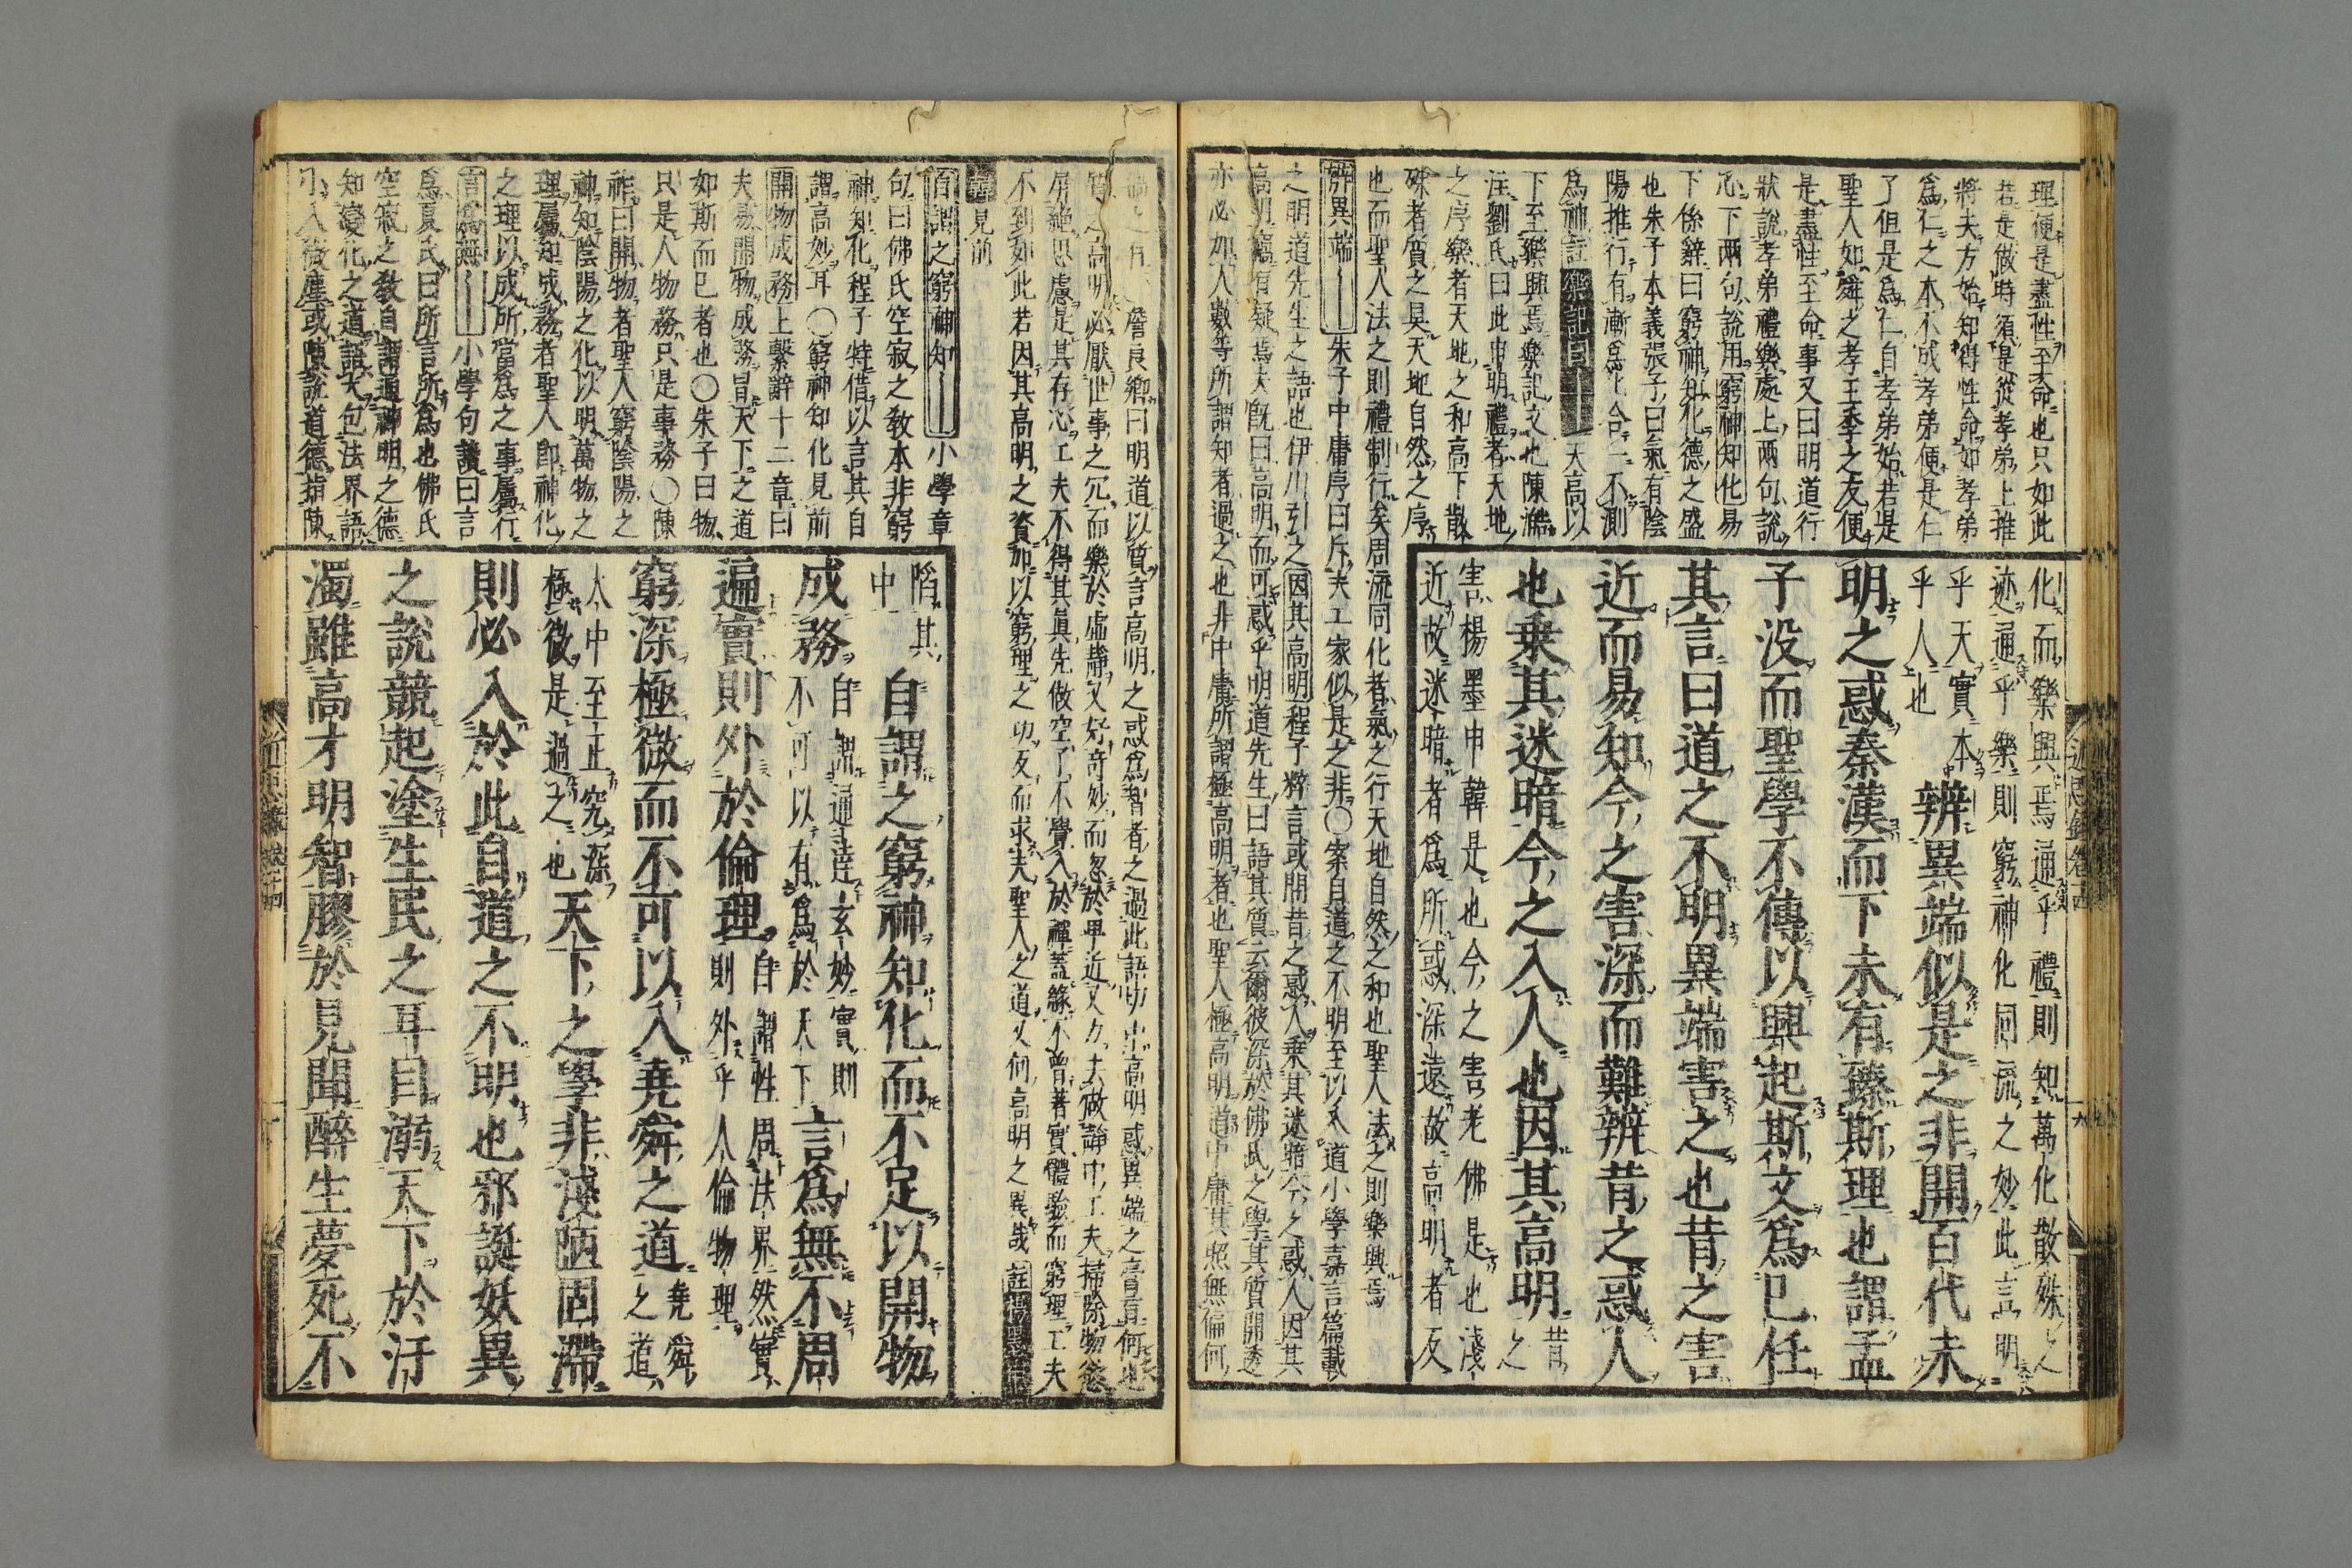 理便是盡性至命也只如此
若是做時須是從孝弟上推
將去方始知得性命如孝弟
爲仁之本不成孝弟便是仁
了但是爲仁自孝弟始若是
聖人如舜之孝王季之友便
是盡性至命事又曰明道行
狀說孝弟禮樂處上兩句說
心下兩句說用窮神知化易
下係辭曰窮神知化德之盛
也朱子本義張子曰氣有陰
陽推行有漸爲化合一不測
爲神註樂記曰天高以
下至樂興焉樂記文也陳澔
注劉氏曰此申明禮者天地
之序樂者天地之和高下散
殊者質之具天地自然之序
也而聖人法之則禮制行矣周流同化者氣之行天地自然之和也聖人法之則樂興焉
辨異端朱子中庸序曰斥夫二家似是之非〇案自道之不明至以入道小學嘉言篇載
之明道先生之語也伊川引之因其高明程子粹言或問昔之惑人乗其迷暗今之惑人因其
高明竊有疑焉夫既曰高明而可惑乎明道先生曰語其質云爾彼深於佛氏之學其質開透
亦必加人數等所謂知者過之也非中庸所謂極高明者也聖人極高明道中庸其照無偏何
化而樂興焉通乎禮則知萬化散殊之
迹通乎樂則窮神化同流之妙此言明
乎天實本
乎人也
辨異端似是之非開百代未
明之惑秦漢而下未有臻斯理也謂孟
子没而聖學不傳以興起斯文爲己任
其言曰道之不明異端害之也昔之害
近而易知今之害深而難辨昔之惑人
也乗其迷暗今之入人也因其高明昔之
害楊墨申韓是也今之害老佛是也淺
近故迷暗者爲所惑深遠故高明者反
近思錄卷十四
過之有詹良卿曰明道以質言高明之惑爲智者之過此語切中高明惑異端之膏肓何也
質之高明必厭世事之冗而樂於虛靜又好奇妙而忽於卑近又力去做靜中工夫掃除物慾
屏絕思慮是其存心工夫不得其眞先做空了不覺入於禪蓋緣不曾著實體驗而窮理工夫
不到如此若因其高明之資加以窮理之功反而求夫聖人之道又何高明之異哉註楊墨
見前
自謂之窮神知小學章
句曰佛氏空寂之敎本非窮
神知化程子特借以言其自
謂高妙耳〇窮神知化見前
開物成務上繫辭十二章曰
夫易開物成務冒天下之道
如斯而已者也〇朱子曰物
只是人物務只是事務〇陳
祚曰開物者聖人窮陰陽之
神知陰陽之化以明萬物之
理屬知成務者聖人卽神化
之理以成所當爲之事屬行
言爲無小學句讀曰言
爲夏氏曰所言所爲也佛氏
空寂之敎自謂通神明之德
知變化之道語大包法界語
小入微塵或陳說道德指陳
陷其
中
自謂之窮神知化而不足以開物
成務自謂通達玄妙實則
不可以有爲於天下言爲無不周
遍實則外於倫理自謂性周法界然實
則外乎人倫物理
窮深極微而不可以入堯舜之道堯舜
之道
大中至正究深
極微是過之也天下之學非淺陋固滯
則必入於此自道之不明也邪誕妖異
之說競起塗生民之耳目溺天下於汙
濁雖高才明智膠於見聞醉生夢死不
近思錄卷十四